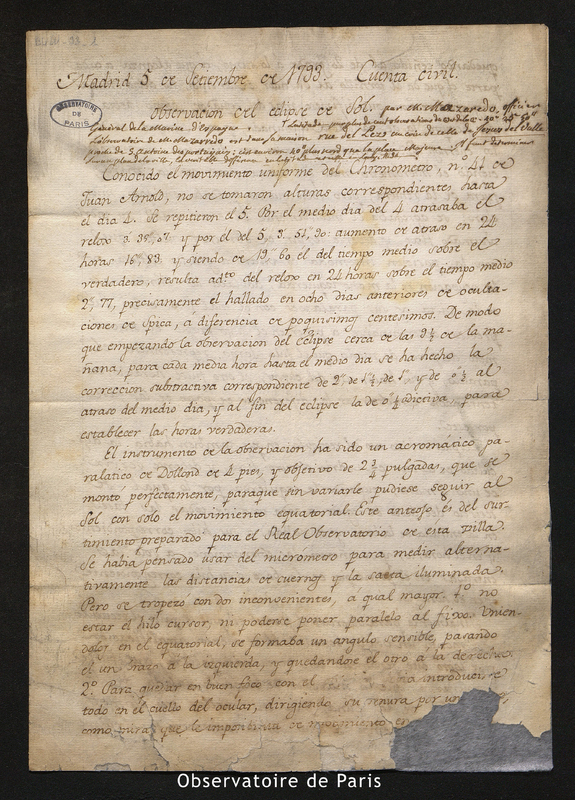 Madrid 5 de Setiembre de 1793. Cuenta civil.
OBSERVATOIRE
DE
PARIS
Observacion del eclipse de Sol. par M. Mazaredo, officier
General de la Marine d'espagne
L'observatoire de M. Mazaredo est dans sa maison rue del Pez
Conocido el movimiento uniforme del Chronometro, nº 41 de
Juan Arnold, no se tomaron alturas correspondientes hasta
el dia 4. Se repitieron el 5. Por el medio dia del 4 atrasaba el
relox 2 35,07 y por el del 5, 3. 51, 90: aumento de atraso en 24
horas 16, 83 y siendo de 19, 60 el del tiempo medio sobre el
verdadero, resulta ad.to del relox en 24 horas sobre el tiempo medio
2, 77, precisamente el hallado en ocho dias anteriores de oculta-
ciones de Spica, á diferencia de poquisimos centesimos. De modo
que empezando la observacion del eclipse cerca de las 9½ de la ma-
ñana, para cada media hora hasta el medio dia se ha hecho la
correccion substractiva correspondiente de 2, de 1½, de 1, y de 0½ al
atraso del medio dia, y al fin del eclipse la de 0¼ adictiva, para
establecer las horas verdaderas.
El instrumento de la observacion ha sido un acromático pa-
ralatico de Dollond de 4 pies, y objetivo de 2¾ pulgadas, que se
monto perfectamente, paraque sin variarle pudiese seguir al
Sol con solo el movimiento equatorial. Este anteojo es del sur-
timiento preparado para el Real Observatorio de esta Villa.
Se habia pensado usar del micrometro para medir alterna-
tivamente las distancias de cuernos y la saeta iluminada.
Pero se tropezó con dos inconvenientes, a qual mayor. 1º no
estar el hilo cursor, ni poderse poner paralelo al fixo. Unien-
dolos en el equatorial, se formaba un angulo sensible, pasando
el un brazo á la izquierda, y quedandose el otro a la derecha.
2º Para quedar en buen foco con el introducirse
todo en el cuello del ocular, dirigiendo su ranura por un
como
Observatoire de Paris